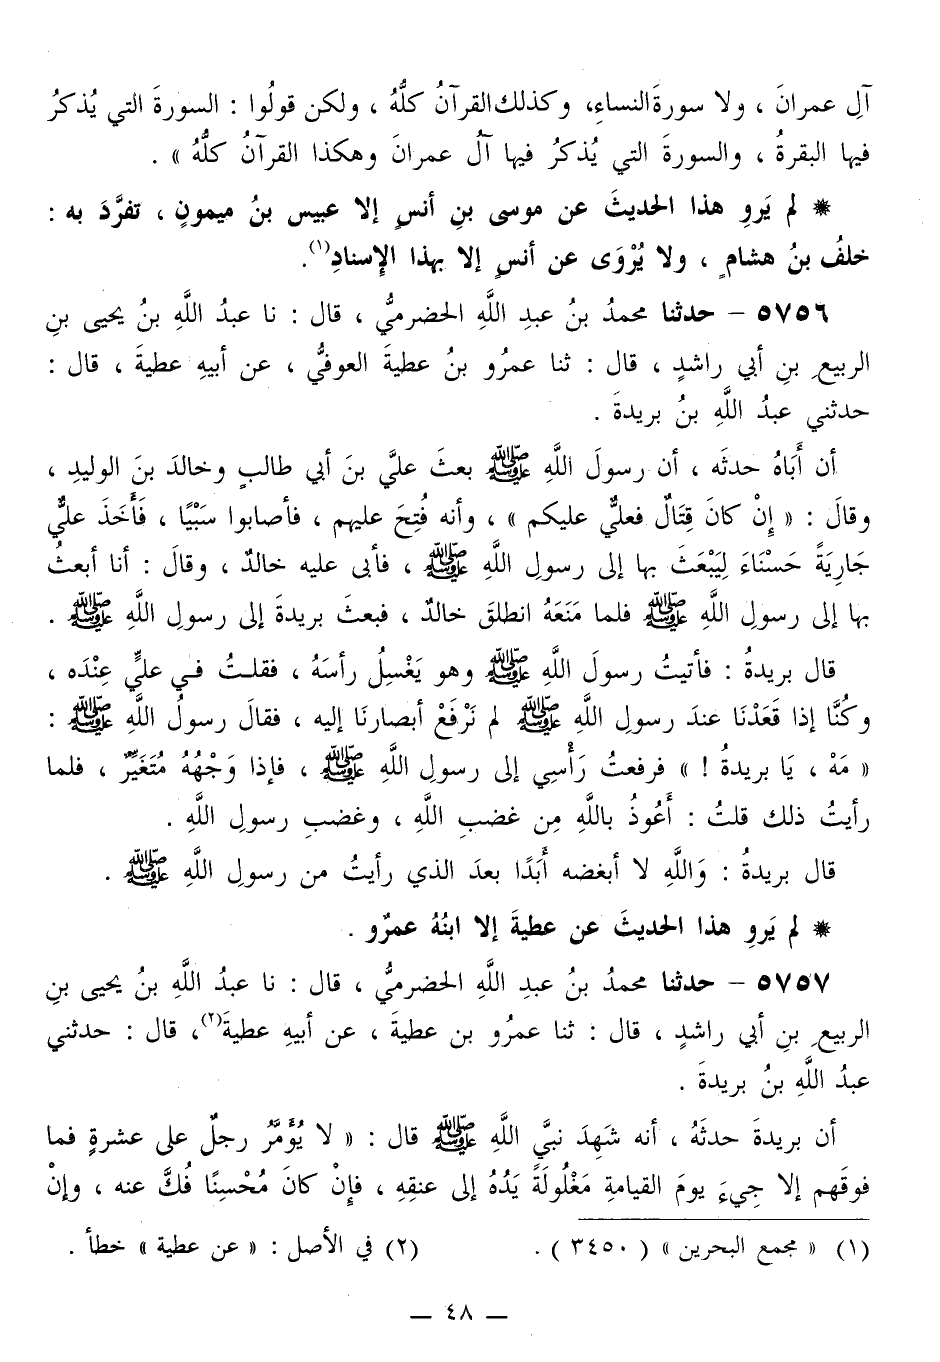 آلِ عمرانَ ، ولا سورةَ النساءِ، وكذلك القرآنُ كلُّهُ ، ولكن قولُوا : السورةَ التي يُذكرُ
فيها البقرةُ ، والسورةَ التي يُذكرُ فيها آلُ عمرانَ وهكذا القرآنُ كلُّهُ » .
* لم يَروِ هذا الحديثَ عن موسى بنِ أنسٍ إلا عبيس بنُ ميمونٍ ، تفرَّدَ به :
خلفُ بنُ هشامٍ ، ولا يُرْوَى عن أنسٍ إلا بهذا الإِسنادِ(١).
٥٧٥٦ – حدثنا محمدُ بنُ عبدِ اللَّهِ الحضرميُّ ، قال : نا عبدُ اللَّهِ بنُ يحيى بنِ
الربيعِ بنِ أبي راشدٍ ، قال : ثنا عمرُو بنُ عطيةَ العوفيُّ ، عن أبيهِ عطيةَ ، قال :
حدثني عبدُ اللَّهِ بنُ بريدةَ .
أن أَبَاهُ حدثَه ، أن رسولَ اللَّهِ ﷺ بعثَ عليَّ بنَ أبي طالبٍ وخالدَ بنَ الوليدِ ،
وقالَ : « إِنْ كانَ قِتَالٌ فعليٌّ عليكم » ، وأنه فُتِحَ عليهم ، فأصابوا سَبْيًا ، فَأَخَذَ عليٌّ
جَارِيَةً حَسْنَاءَ لِيَبْعَثَ بها إلى رسولِ اللَّهِ ﷺ ، فأبى عليه خالدٌ ، وقالَ : أنا أبعثُ
بها إلى رسولِ اللَّهِ ﷺ فلما مَنَعَهُ انطلقَ خالدٌ ، فبعثَ بريدةَ إلى رسولِ اللَّهِ ﷺ .
قال بريدةُ : فأتيتُ رسولَ اللَّهِ ﷺ وهو يَغْسِلُ رأسَهُ ، فقلتُ في عليٍّ عِنْدَه ،
وكُنَّا إذا قَعَدْنَا عندَ رسولِ اللَّهِ ﷺ لم نَرْفَعْ أبصارنَا إليه ، فقالَ رسولُ اللَّهِ ﷺ :
« مَهْ ، يَا بريدةُ ! » فرفعتُ رَأْسِي إلى رسولِ اللَّهِ ﷺ ، فإذا وَجْهُهُ مُتَغَيِّرٌ ، فلما
رأيتُ ذلك قلتُ : أَعُوذُ باللَّهِ مِن غضبِ اللَّهِ ، وغضبِ رسولِ اللَّهِ .
قال بريدةُ : وَاللَّهِ لا أبغضه أَبَدًا بعدَ الذي رأيتُ من رسولِ اللَّهِ ﷺ .
* لم يَروِ هذا الحديثَ عن عطيةَ إلا ابنُهُ عمرٌو .
٥٧٥٧ – حدثنا محمدُ بنُ عبدِ اللَّهِ الحضرميُّ ، قال : نا عبدُ اللَّهِ بنُ يحيى بنِ
الربيعِ بنِ أبي راشدٍ ، قال : ثنا عمرُو بن عطيةَ ، عن أبيهِ عطيةَ(٢)، قال : حدثني
عبدُ اللَّهِ بنُ بريدةَ .
أن بريدةَ حدثَهُ ، أنه شَهِدَ نبيَّ اللَّهِ ﷺ قال : « لا يُؤَمَّرُ رجلٌ على عشرةٍ فما
فوقَهم إلا جِيءَ يومَ القيامةِ مَغْلُولَةً يَدُهُ إلى عنقِهِ ، فإِنْ كانَ مُحْسِنًا فُكَّ عنه ، وإنْ
(١) « مجمع البحرين » ( ٣٤٥٠ ) .
(٢) في الأصل : « عن عطية » خطأ .
— ٤٨ —